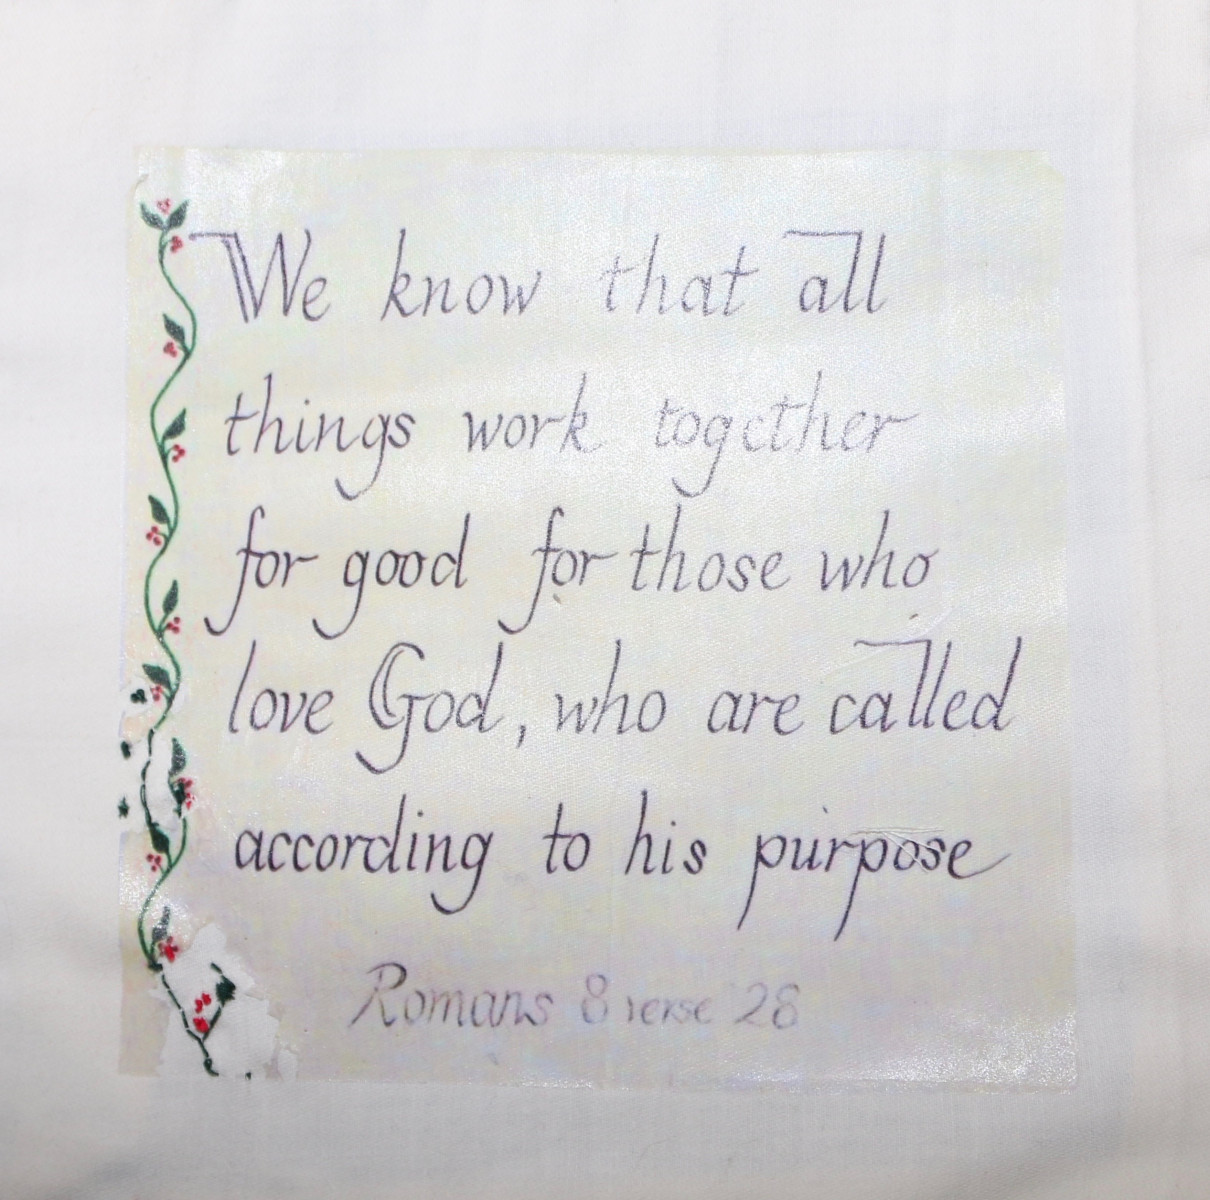 We know that all
things work together
for good for those who
love God, who are called
according to his purpose
Romans 8 verse 28